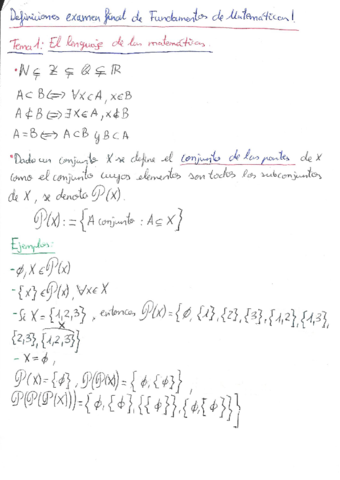 Definiciones examen final de Fundamentos de Matemáticas I
Tema 1: El lenguaje de las matemáticas
• ℕ ⊊ ℤ ⊊ ℚ ⊊ ℝ
A ⊂ B ⟺ ∀x ∈ A, x ∈ B
A ⊄ B ⟺ ∃x ∈ A, x ∉ B
A = B ⟺ A ⊂ B y B ⊂ A
• Dado un conjunto X se define el conjunto de las partes de X
como el conjunto cuyos elementos son todos los subconjuntos
de X, se denota 𝒫(X).
𝒫(X) := {A conjunto : A ⊆ X}
Ejemplos:
- ϕ, X ∈ 𝒫(X)
- {x} ∈ 𝒫(X), ∀x ∈ X
- Si X = {1,2,3}, entonces 𝒫(X) = {ϕ, {1}, {2}, {3}, {1,2}, {1,3},
{2,3}, {1,2,3}}
X
- X = ϕ,
𝒫(X) = {ϕ}, 𝒫(𝒫(X)) = {ϕ, {ϕ}},
𝒫(𝒫(𝒫(X))) = {ϕ, {ϕ}, {{ϕ}}, {ϕ, {ϕ}}}